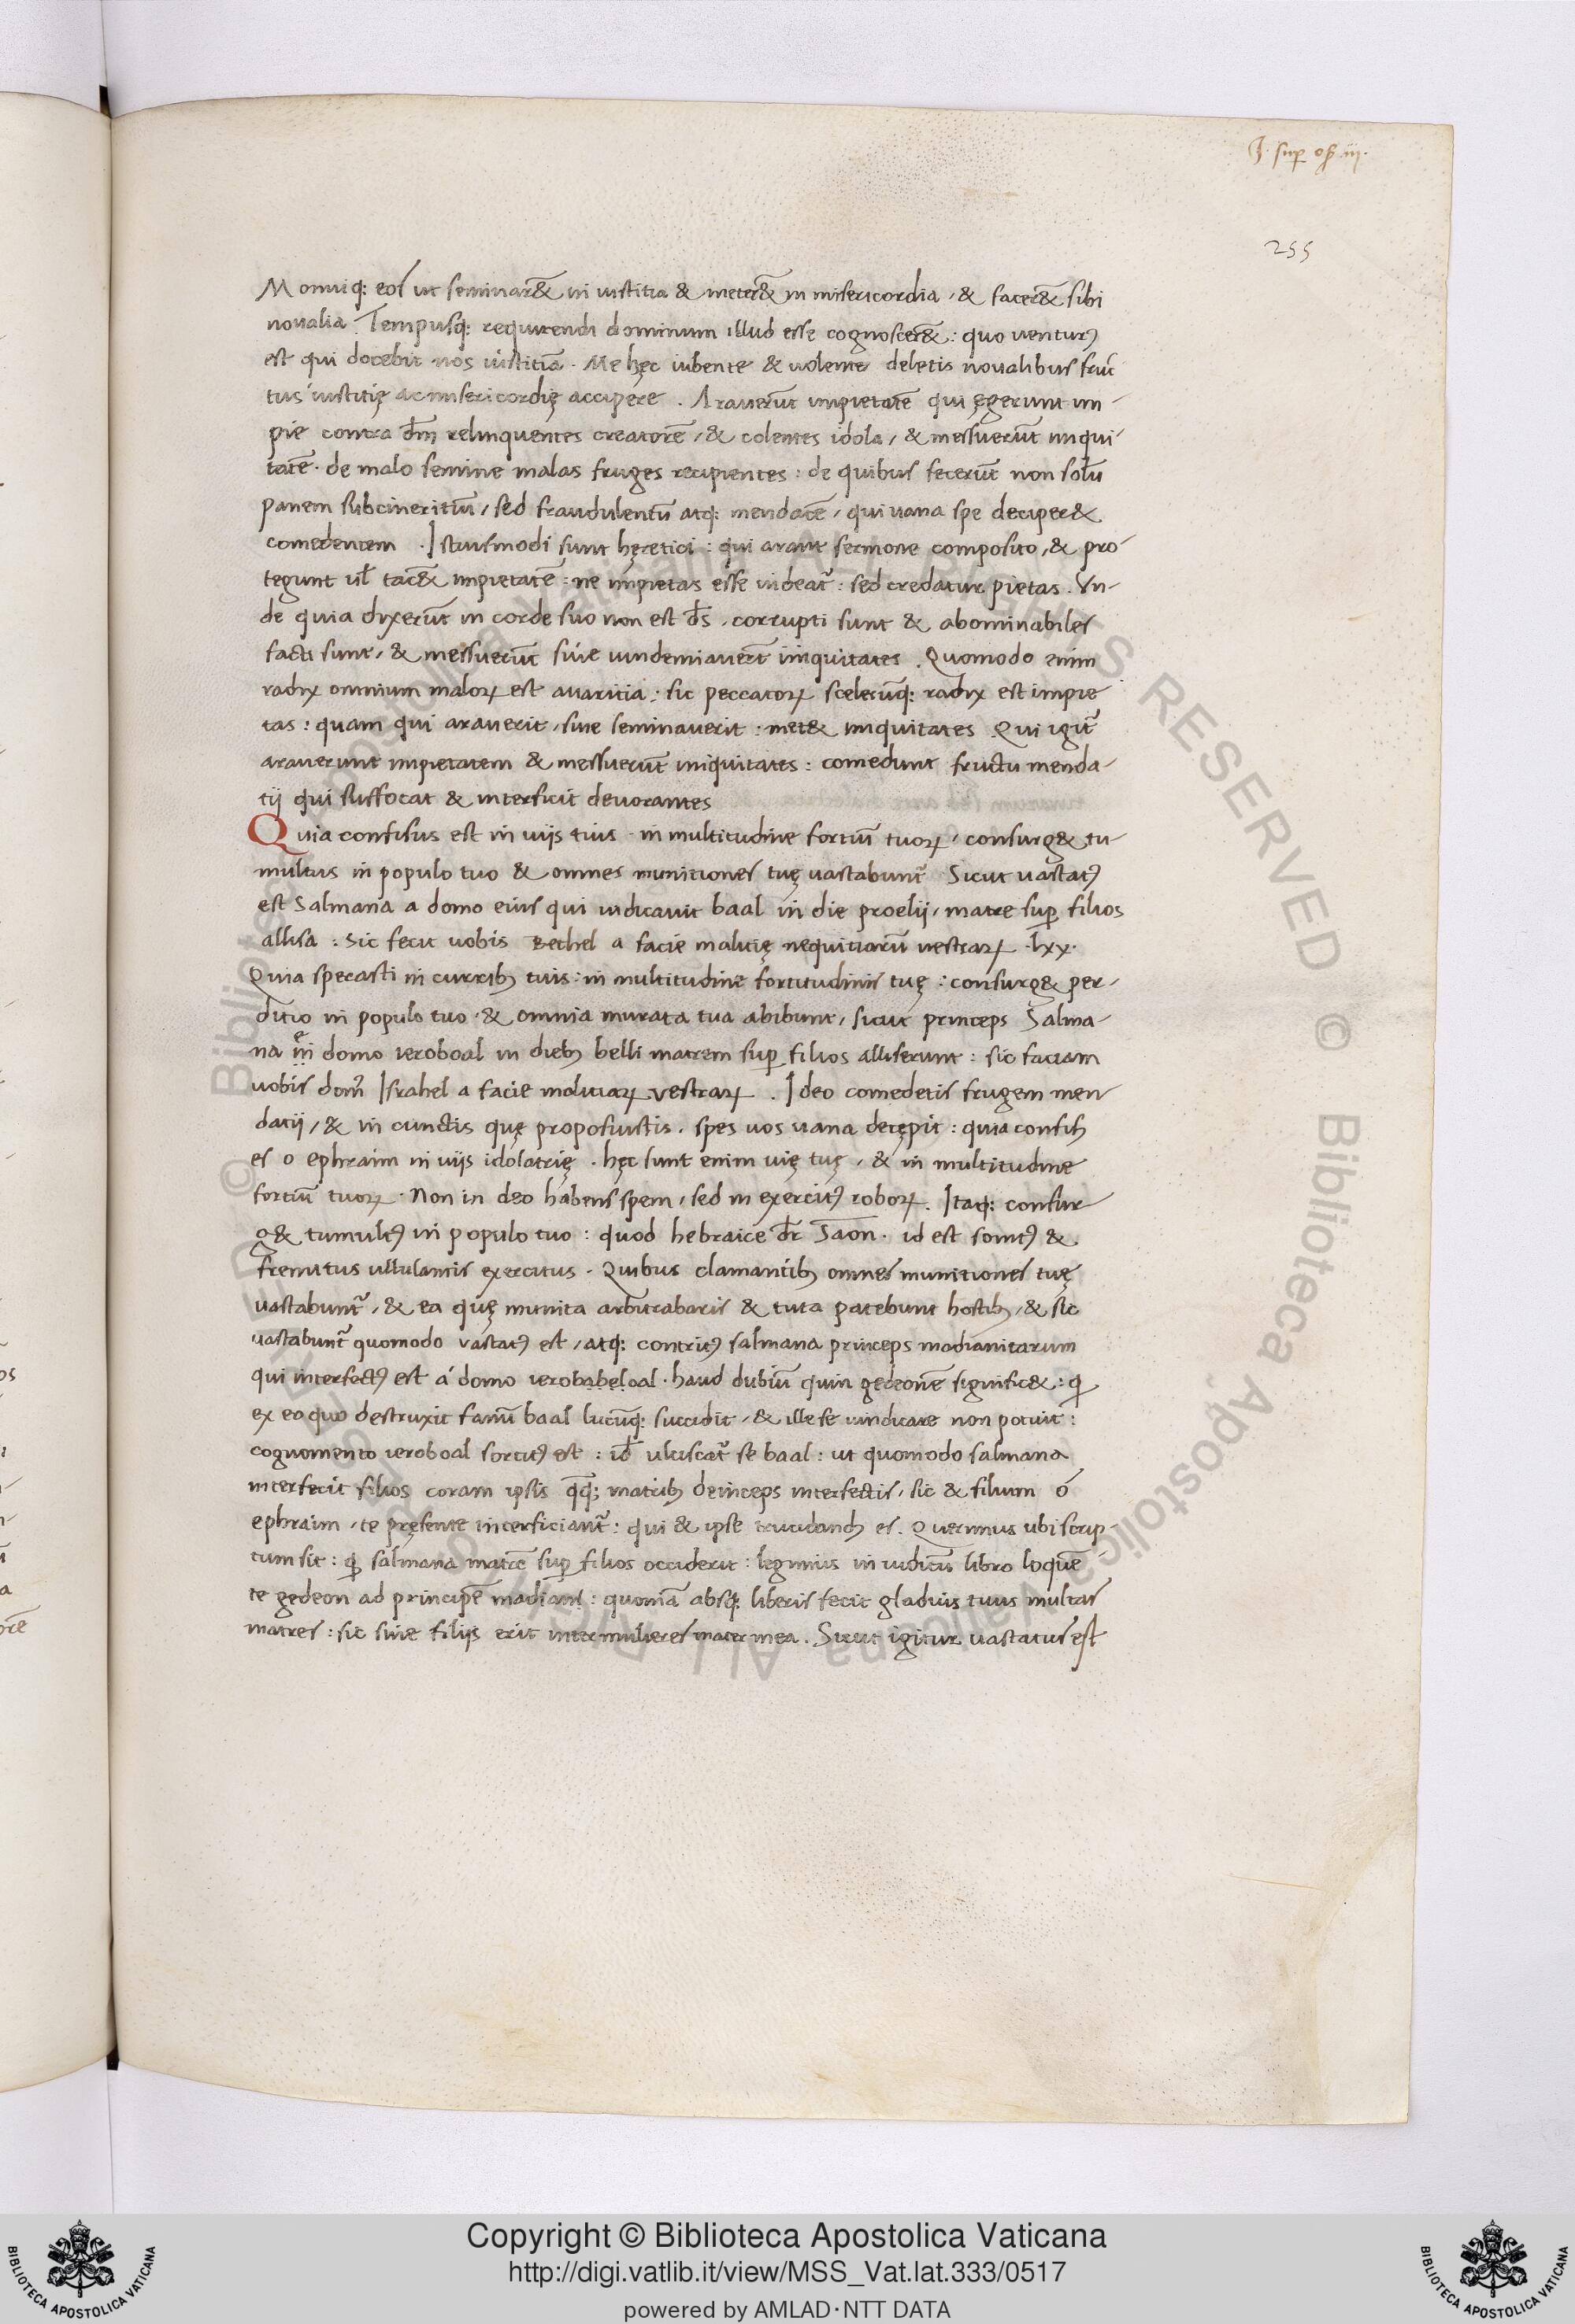 J. sup os̄ iij.
255
Monuiq: eos ut seminar& in iustitia & meter& in misericordia, & facer& sibi
noualia. Tempusq: requirendi dominum illud esse cognoscer&: quo uentur9
est qui docebit nos iustitiā. Me hęc iubente & uolente deletis noualibus fruc
tus iustitię ac misericordię accipere. Arauerūt impietatē qui ęgerunt im-
pie contra dm̄ relinquentes creatorē, & colentes idola, & messuerūt iniqui-
tatē. de malo semine malas fruges recipientes: de quibus fecerūt non solū
panem subcineritiū, sed fraudulentū atq: mendacē, qui uana spe deciper&
comedentem. Istiusmodi sunt hęretici: qui arant sermone composito, & pro-
tegunt ul̄ tac& impietatē: ne impietas esse uideat᷑: sed credatur pietas. Vn-
de quia dixerūt in corde suo non est ds̄, corrupti sunt & abominabiles
facti sunt, & messuerūt siue uindemiauerūt iniquitates. Quomodo enim
radix omnium maloꝝ est auaritia: sic peccatoꝝ scelerūq: radix est impie-
tas: quam qui arauerit, siue seminauerit: met& iniquitates. Qui igit᷑
arauerunt impietatem & messuerūt iniquitates: comedunt fructū menda-
tij qui suffocat & interficit deuorantes
Quia confisus est in uijs tuis in multitudine fortiū tuoꝝ, consurg& tu-
multus in populo tuo & omnes munitiones tuę uastabunt᷑. Sicut uastat9
est Salmana a domo eius qui iudicauit baal in die proelij, matre suꝑ filios
allisa: Sic fecit uobis Bethel a facie malitię nequitiarū vestraꝝ. lxx.
Quia sperasti in currib; tuis: in multitudine fortitudinis tuę: consurg& per-
ditio in populo tuo & omnia murata tua abibunt, sicut princeps Salma-
na ē in domo ieroboal in dieb; belli matrem suꝑ filios alliserunt: sic faciam
uobis dom9 Israhel a facie malitiaꝝ vestraꝝ. Ideo comedetis frugem men
dacij, & in cunctis quę proposuistis. spes uos uana decępit: quia confis9
es o ephraim in uijs idolatrię. hęc sunt enim uię tuę, & in multitudine
fortiū tuoꝝ. Non in deo habens spem, sed in exercit9 roboꝝ. Itaq: consur
g& tumult9 in populo tuo: quod hebraice dr̄ Saon. id est sonit9 &
fremitus ullulantis exercitus. Quibus clamantib; omnes munitiones tuę
uastabunt᷑, & ea quę munita arbitrabaris & tuta patebunt hostib;, & sic
uastabunt᷑ quomodo vastat9 est, atq: contrit9 salmana princeps madianitarum
qui interfect9 est á domo ierobabeloal. haud dubiū quin gedeonē signific&: ꝙ
ex eo quo destruxit fanū baal lucūq: succidit, & ille se uindicare non potuit:
cognomento ieroboal sortit9 est: id̄ ulciscat᷑ se baal: ut quomodo salmana
interfecit filios coram ipsis qq̄: matrib; deinceps interfectis, sic & filium ó
ephraim, te pręsente interficiant᷑: qui & ipse trucidand9 es. Querimus ubi scrip-
tum sit: ꝙ salmana matrē suꝑ filios occiderit: legimus in iudicū libro loquē-
te gedeon ad principē madiam: quoniā absq: liberis fecit gladius tuus multas
matres: sic sine filijs erit inter mulieres mater mea. Sicut igitur uastatus est
Copyright © Biblioteca Apostolica Vaticana
http://digi.vatlib.it/view/MSS_Vat.lat.333/0517
powered by AMLAD·NTT DATA